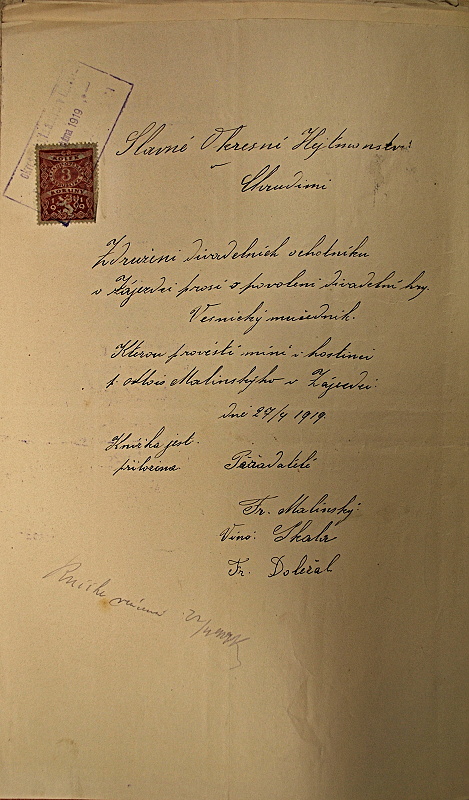 1919
3
KORUNY
Slavné Okresní Hejtmanství
v
Chrudimi
Združení divadelních ochotníku
v Zájezdci prosí o povolení divadelní hry.
Vesnický mučedník.
Kterou provésti míní v hostinci
p. Aloise Malinskýho v Zájezdci
dne 27/4 1919.
Knížka jest
přiložena
Pořadatelé
Fr. Malinský
Vinc. Skala
Fr. Doležal